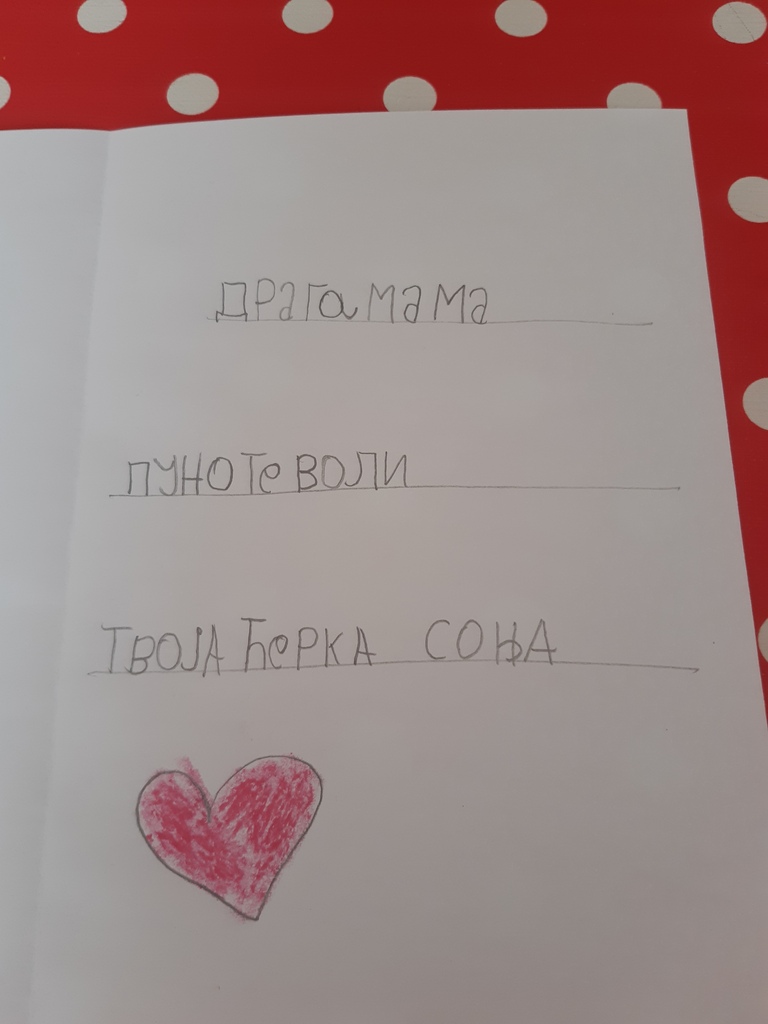 Драга мама
пуно те воли
твоја ћерка Соња